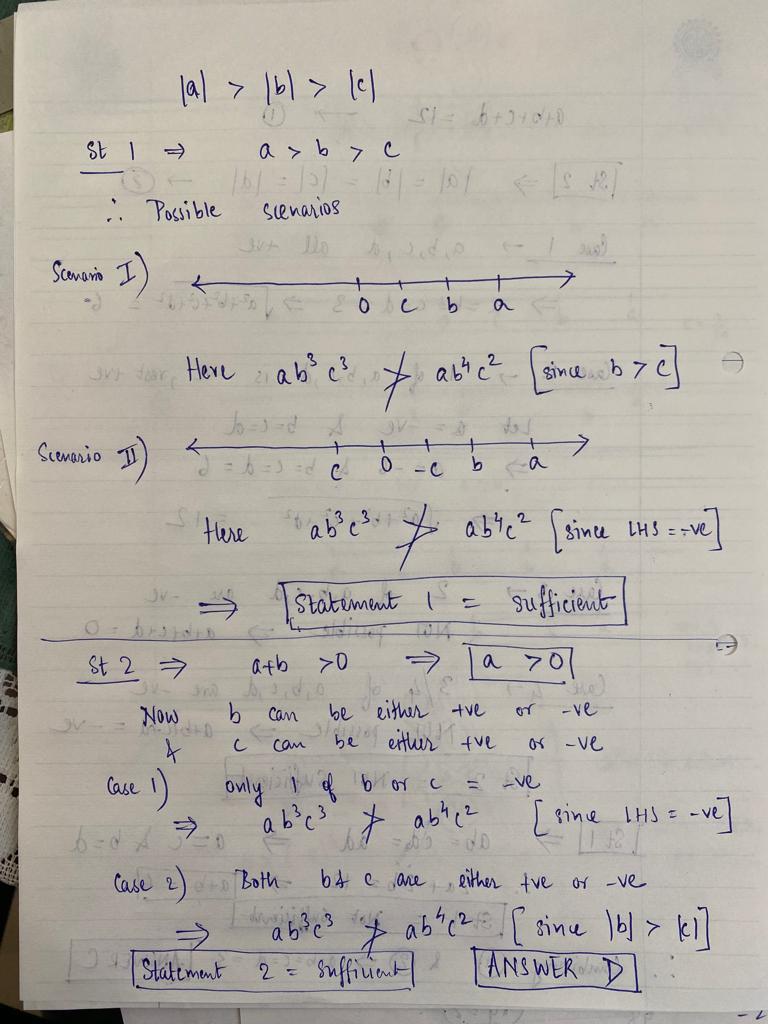 |a| > |b| > |c|
St 1 ⇒ a > b > c
∴ Possible scenarios
Scenario I)
0 c b a
Here ab³c³ ≯ ab⁴c² [since b > c]
Scenario II)
c 0 -c b a
Here ab³c³ ≯ ab⁴c² [since LHS = -ve]
⇒ Statement 1 = Sufficient
St 2 ⇒ a+b > 0 ⇒ a > 0
Now b can be either +ve or -ve
& c can be either +ve or -ve
Case 1) only 1 of b or c = -ve
⇒ ab³c³ ≯ ab⁴c² [since LHS = -ve]
Case 2) Both b & c are either +ve or -ve
⇒ ab³c³ ≯ ab⁴c² [since |b| > |c|]
Statement 2 = Sufficient ANSWER D